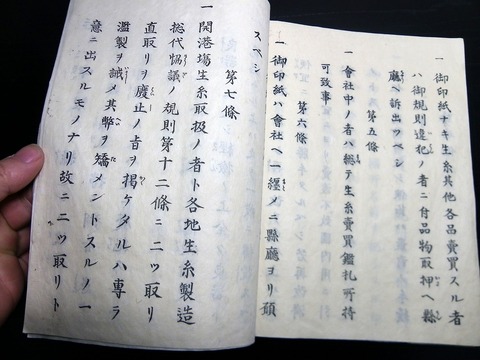 一 御印紙ナキ生糸其他各品賣買スル者
ハ御規則違犯ノ者ニ付品物取押ヘ縣
廳ヘ訴出ツベシ
第五條
一 會社中ノ者ハ總テ生糸賣買鑑札所持
可致事
第六條
一 御印紙ハ會社ヘ一纏メニ縣廳ヨリ頒
スベシ
第七條
一 開港場生糸取扱ノ者ト各地生糸製造
総代協議ノ規則第十二條ニ二ッ取リ
直取リヲ廢止ノ旨ヲ掲ケタルハ専ラ
濫製ヲ誡メ其弊ヲ矯メントスルノ一
意ニ出スルモノナリ故ニ二ッ取リト